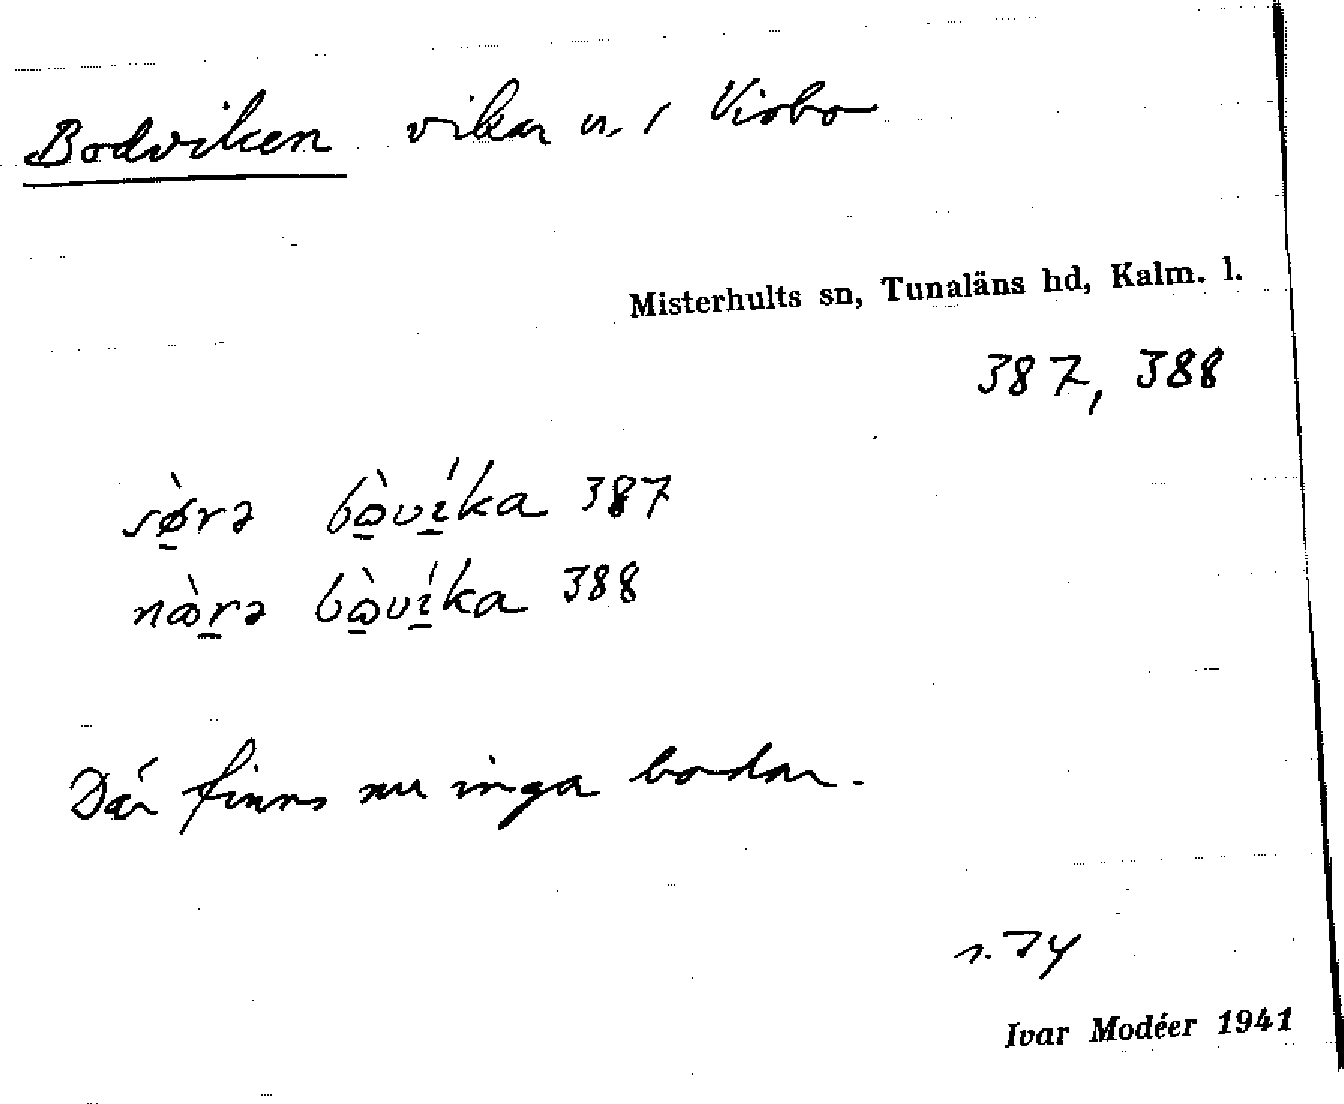 Bodviken vikar u. / Virbo
Misterhults sn, Tunaläns hd, Kalm. l.
387, 388
sø̠̀rə bò̠ví̠ka 387
nòr̠ə bò̠ví̠ka 388
Där finns nu inga bodar.
s. 74
Ivar Modéer 1941